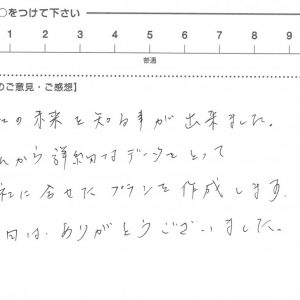 ○をつけて下さい
1 2 3 4 5 6 7 8 9
普通
のご意見・ご感想】
社の未来を知る事が出来ました。
から詳細なデータをとって
社に合せたプランを作成します。
日は、ありがとうございました。